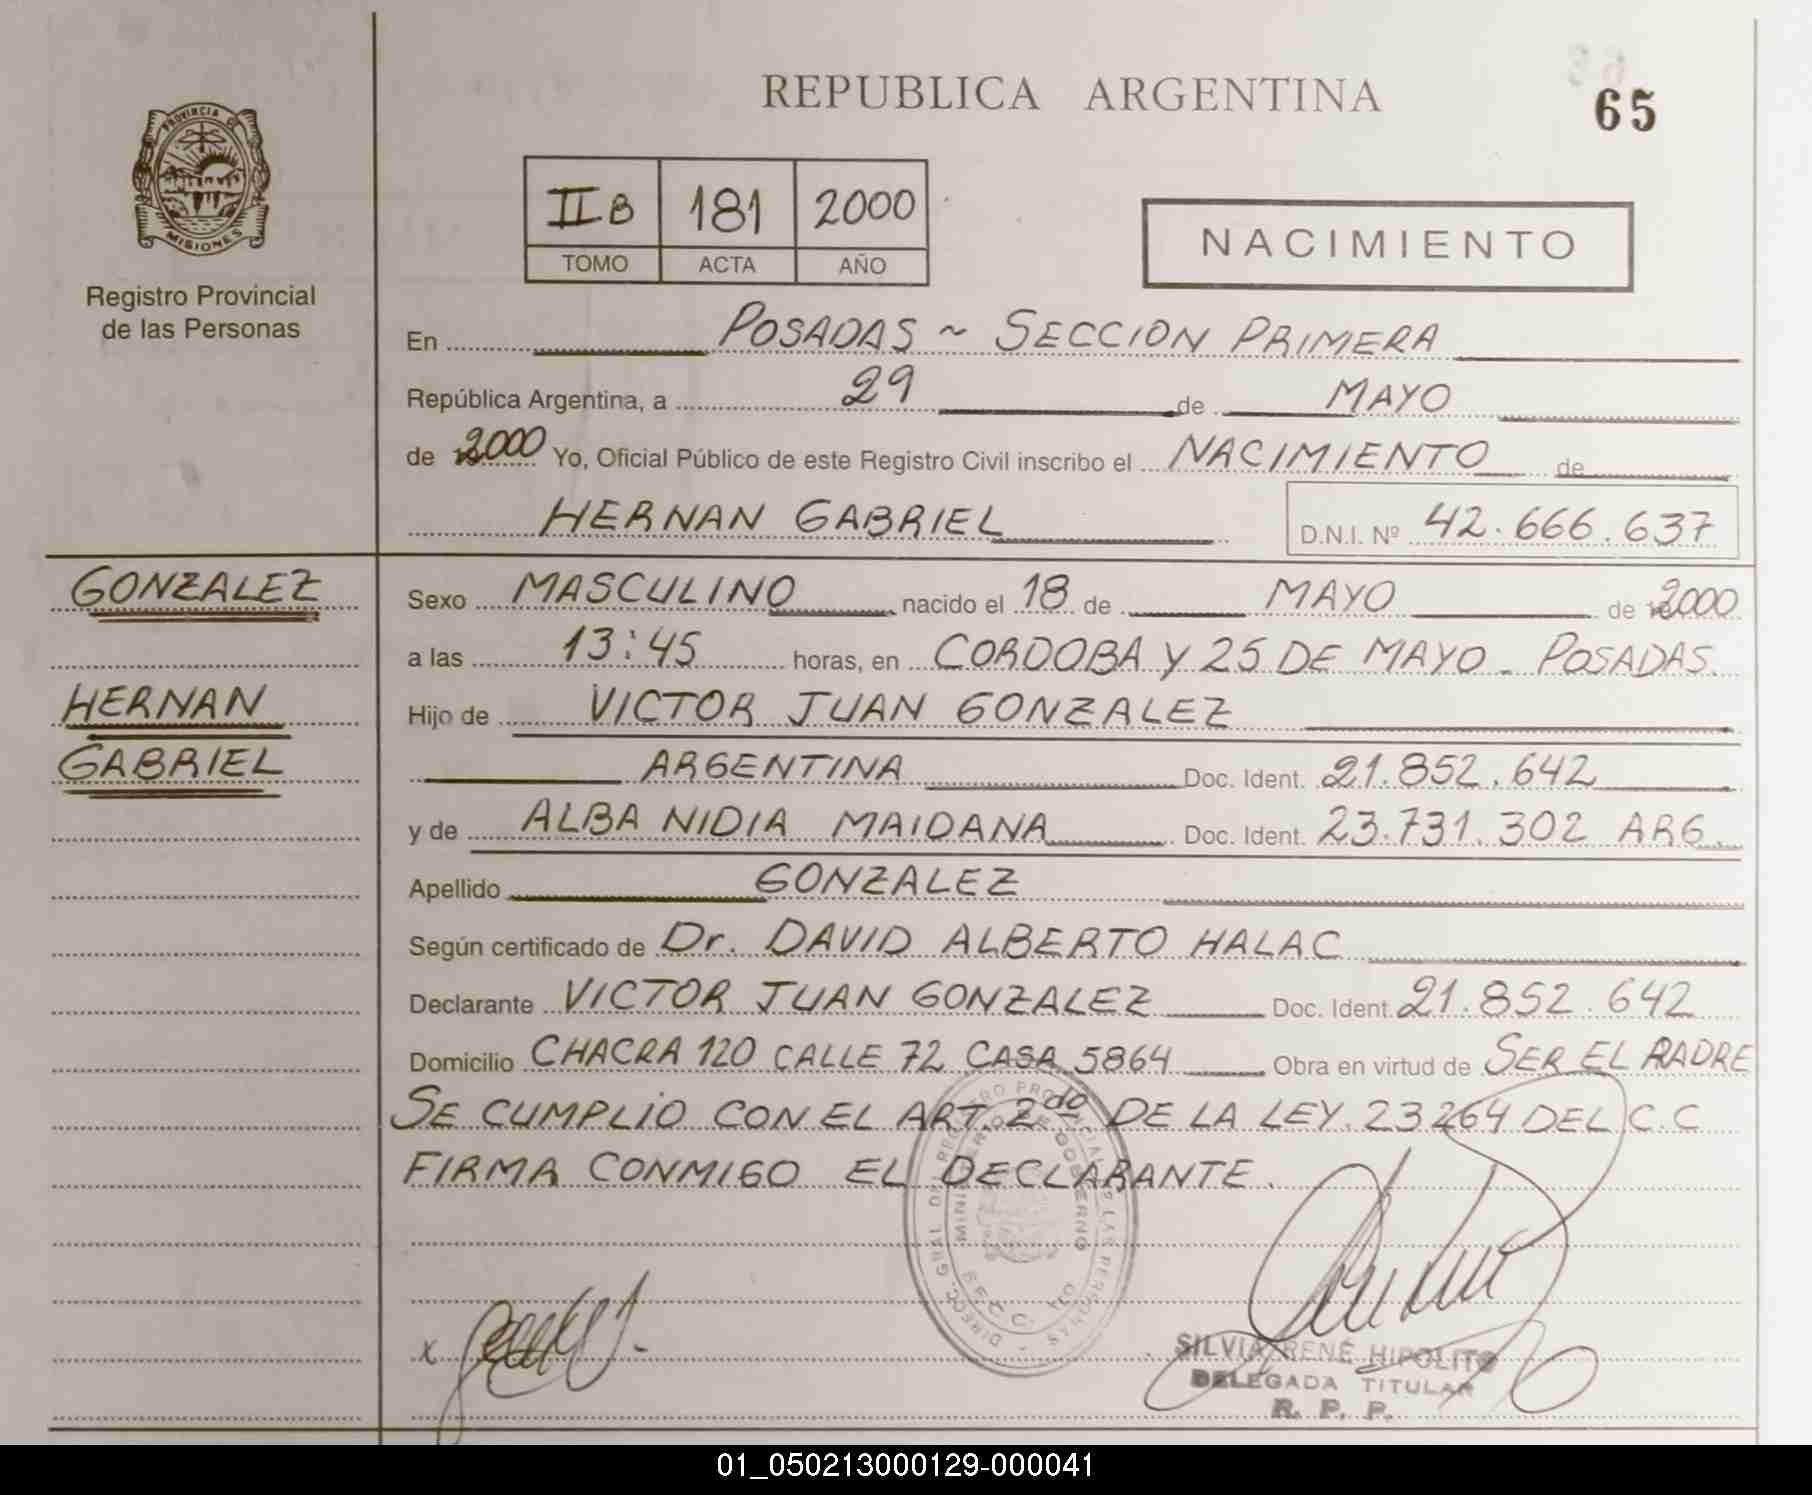 REPUBLICA ARGENTINA
65
PROVINCIA DE
MISIONES
Registro Provincial
de las Personas
II B 181 2000
TOMO ACTA AÑO
NACIMIENTO
En POSADAS ~ SECCION PRIMERA
República Argentina, a 29 de MAYO
de 2000 Yo, Oficial Público de este Registro Civil inscribo el NACIMIENTO de
HERNAN GABRIEL D.N.I. Nº 42.666.637
GONZALEZ
HERNAN
GABRIEL
Sexo MASCULINO nacido el 18 de MAYO de 2000
a las 13:45 horas, en CORDOBA Y 25 DE MAYO - POSADAS.
Hijo de VICTOR JUAN GONZALEZ
ARGENTINA Doc. Ident. 21.852.642
y de ALBA NIDIA MAIDANA Doc. Ident. 23.731.302 ARG.
Apellido GONZALEZ
Según certificado de Dr. DAVID ALBERTO HALAC
Declarante VICTOR JUAN GONZALEZ Doc. Ident. 21.852.642
Domicilio CHACRA 120 CALLE 72 CASA 5864 Obra en virtud de SER EL PADRE
SE CUMPLIO CON EL ART. 2do DE LA LEY. 23264 DEL C.C
FIRMA CONMIGO EL DECLARANTE.
DIRECC. GRAL. DEL REGISTRO PROVINCIAL DE LAS PERSONAS
MINISTERIO DE GOBIERNO
x
SILVIA RENÉ HIPOLITO
DELEGADA TITULAR
R. P. P.
01_050213000129-000041